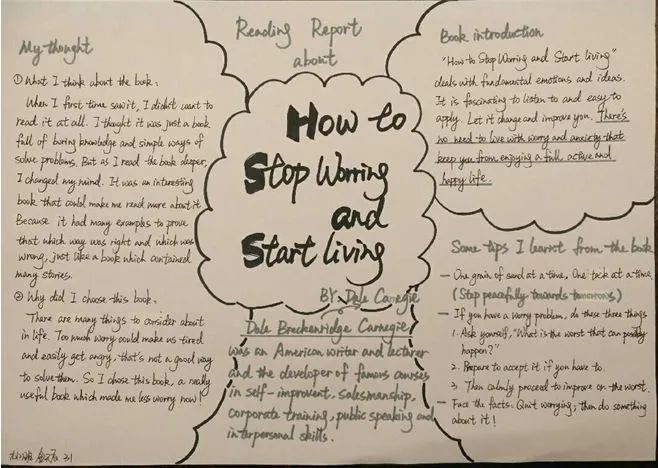 My thought
① What I think about the book:
When I first time saw it, I didn't want to
read it at all. I thought it was just a book
full of boring knowledge and simple ways of
solve problems. But as I read the book deeper,
I changed my mind. It was an interesting
book that could make me read more about it.
Because it had many examples to prove
that which way was right and which was
wrong, just like a book which contained
many stories.
② Why did I choose this book:
There are many things to consider about
in life. Too much worry could make us tired
and easily get angry, that's not a good way
to solve them. So I chose this book, a really
useful book which made me less worry now!
31
Reading Report
about
How to
Stop Worring
and
Start living
BY: Dale Carnegie
Dale Breckenridge Carnegie
was an American writer and lecturer
and the developer of famous courses
in self-improvent, salesmanship,
corporate training, public speaking and
interpersonal skills.
Book introduction
"How to Stop Worring and Start living"
deals with fundamental emotions and ideas.
It is fascinating to listen to and easy to
apply. Let it change and improve you. There's
no need to live with worry and anxiety that
keep you from enjoying a full, active and
happy life.
Some tips I learnt from the book
— One grain of sand at a time, One task at a time.
(Step peacefully towards tomorrows)
— If you have a worry problem, do these three things
1. Ask yourself, "What is the worst that can possibly
happen?"
2. Prepare to accept it if you have to.
3. Then calmly proceed to improve on the worst.
— Face the facts: Quit worrying; then do something
about it!